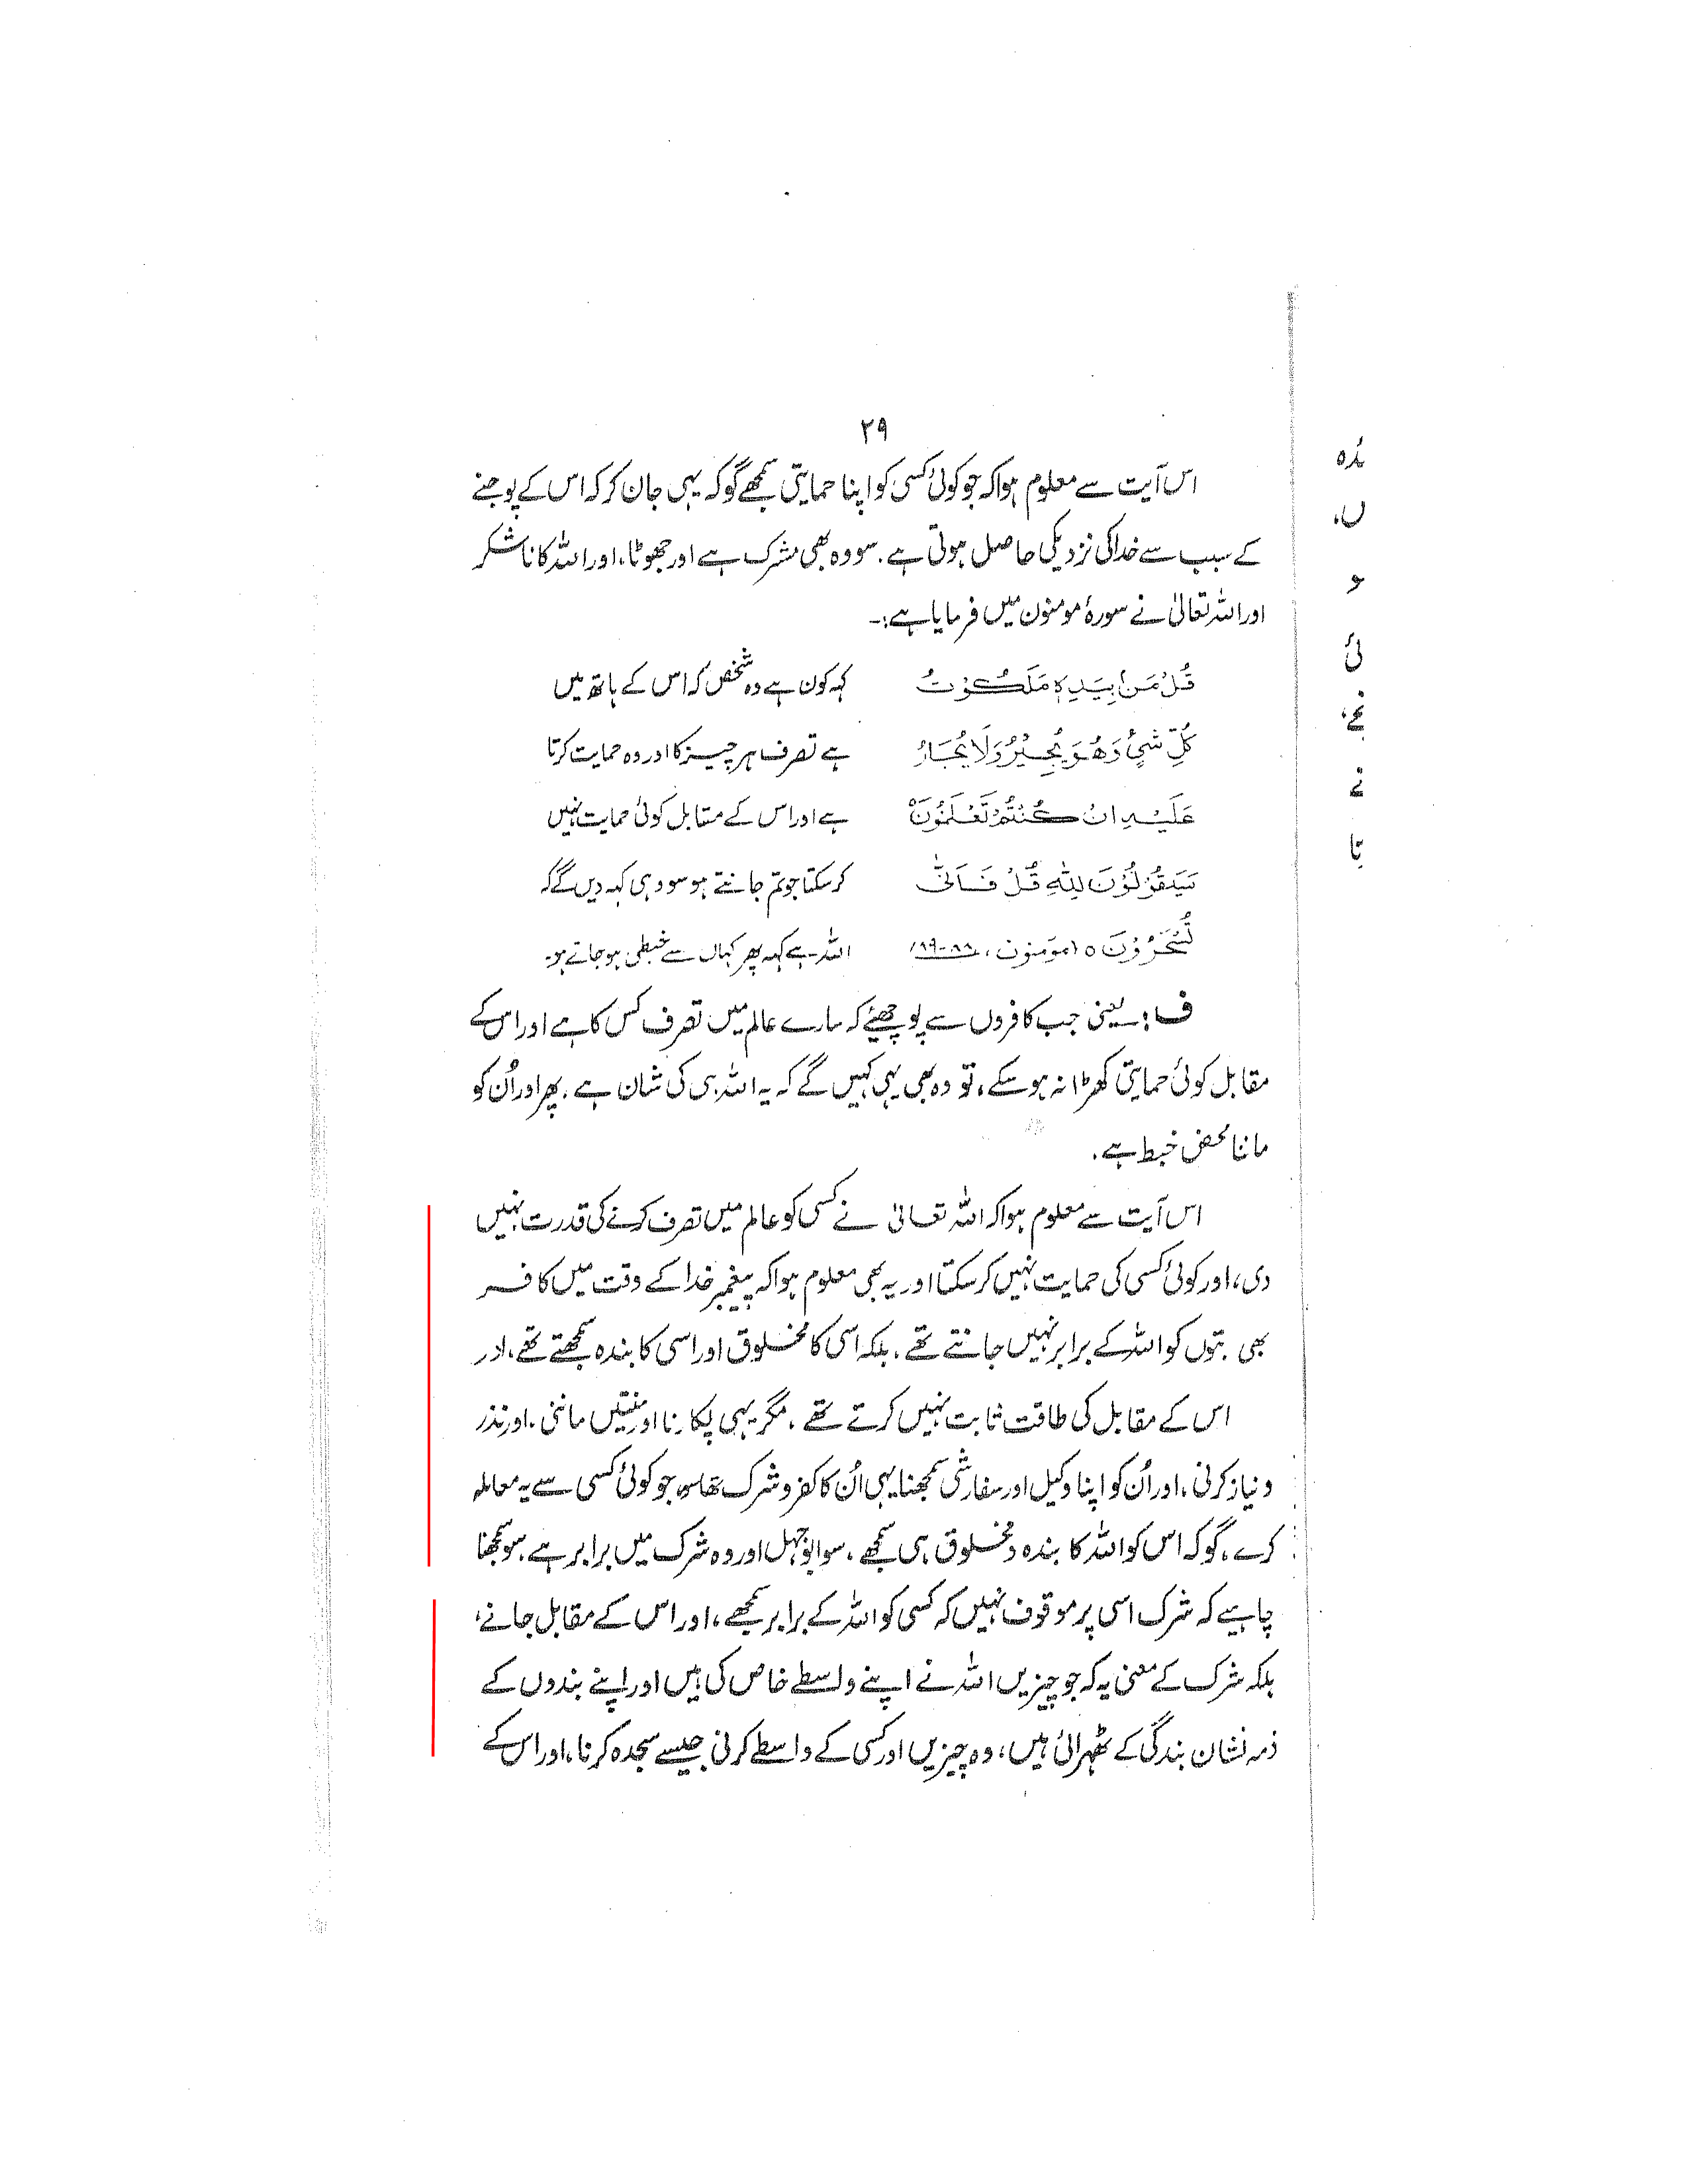 ۲۹
اس آیت سے معلوم ہوا کہ جو کوئی کسی کو اپنا حمایتی سمجھے گو کہ یہی جان کر کہ اس کے پوجنے
کے سبب سے خدا کی نزدیکی حاصل ہوتی ہے۔ سو وہ بھی مشرک ہے اور جھوٹا، اور اللہ کا ناشکر
اور اللہ تعالیٰ نے سورۂ مومنون میں فرمایا ہے:۔
قُلْ مَنْ بِيَدِهٖ مَلَكُوْتُ
كُلِّ شَيْءٍ وَهُوَ يُجِيْرُ وَلَا يُجَارُ
عَلَيْهِ اِنْ كُنْتُمْ تَعْلَمُوْنَ
سَيَقُوْلُوْنَ لِلّٰهِ قُلْ فَاَنّٰى
تُسْحَرُوْنَ ٥ (مومنون، ۸۸-۸۹)
کہہ کون ہے وہ شخص کہ اس کے ہاتھ میں
ہے تصرف ہر چیز کا اور وہ حمایت کرتا
ہے اور اس کے مقابل کوئی حمایت نہیں
کر سکتا جو تم جانتے ہو سو وہی کہہ دیں گے کہ
اللہ ہے کہہ پھر کہاں سے خبطی ہو جاتے ہو۔
ف: یعنی جب کافروں سے پوچھئے کہ سارے عالم میں تصرف کس کا ہے اور اس کے
مقابل کوئی حمایتی کھڑا نہ ہو سکے، تو وہ بھی یہی کہیں گے کہ یہ اللہ ہی کی شان ہے۔ پھر اور اُن کو
ماننا محض خبط ہے۔
اس آیت سے معلوم ہوا کہ اللہ تعالیٰ نے کسی کو عالم میں تصرف کرنے کی قدرت نہیں
دی، اور کوئی کسی کی حمایت نہیں کر سکتا اور یہ بھی معلوم ہوا کہ پیغمبرِ خدا کے وقت میں کافر
بھی بتوں کو اللہ کے برابر نہیں جانتے تھے۔ بلکہ اسی کا مخلوق اور اسی کا بندہ سمجھتے تھے، اور
اس کے مقابل کی طاقت ثابت نہیں کرتے تھے۔ مگر یہی پکارنا اور منتیں ماننی، اور نذر
و نیاز کرنی، اور اُن کو اپنا وکیل اور سفارشی سمجھنا یہی اُن کا کفر و شرک تھا سو جو کوئی کسی سے یہ معاملہ
کرے، گو کہ اس کو اللہ کا بندہ و مخلوق ہی سمجھے، سو ابوجہل اور وہ شرک میں برابر ہے۔ سو سمجھنا
چاہیے کہ شرک اسی پر موقوف نہیں کہ کسی کو اللہ کے برابر سمجھے، اور اس کے مقابل جانے،
بلکہ شرک کے معنی یہ کہ جو چیزیں اللہ نے اپنے واسطے خاص کی ہیں اور اپنے بندوں کے
ذمہ نشان بندگی کے ٹھہرائی ہیں، وہ چیزیں اور کسی کے واسطے کرنی جیسے سجدہ کرنا، اور اس کے